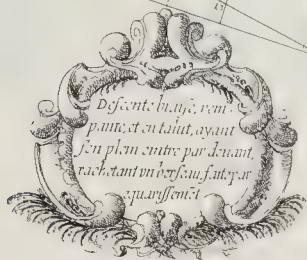 Descente biaise, rem-
pante, et en talut, ayant
son plein cintre par devant,
rachetant un berseau, fait par
equarissemēt